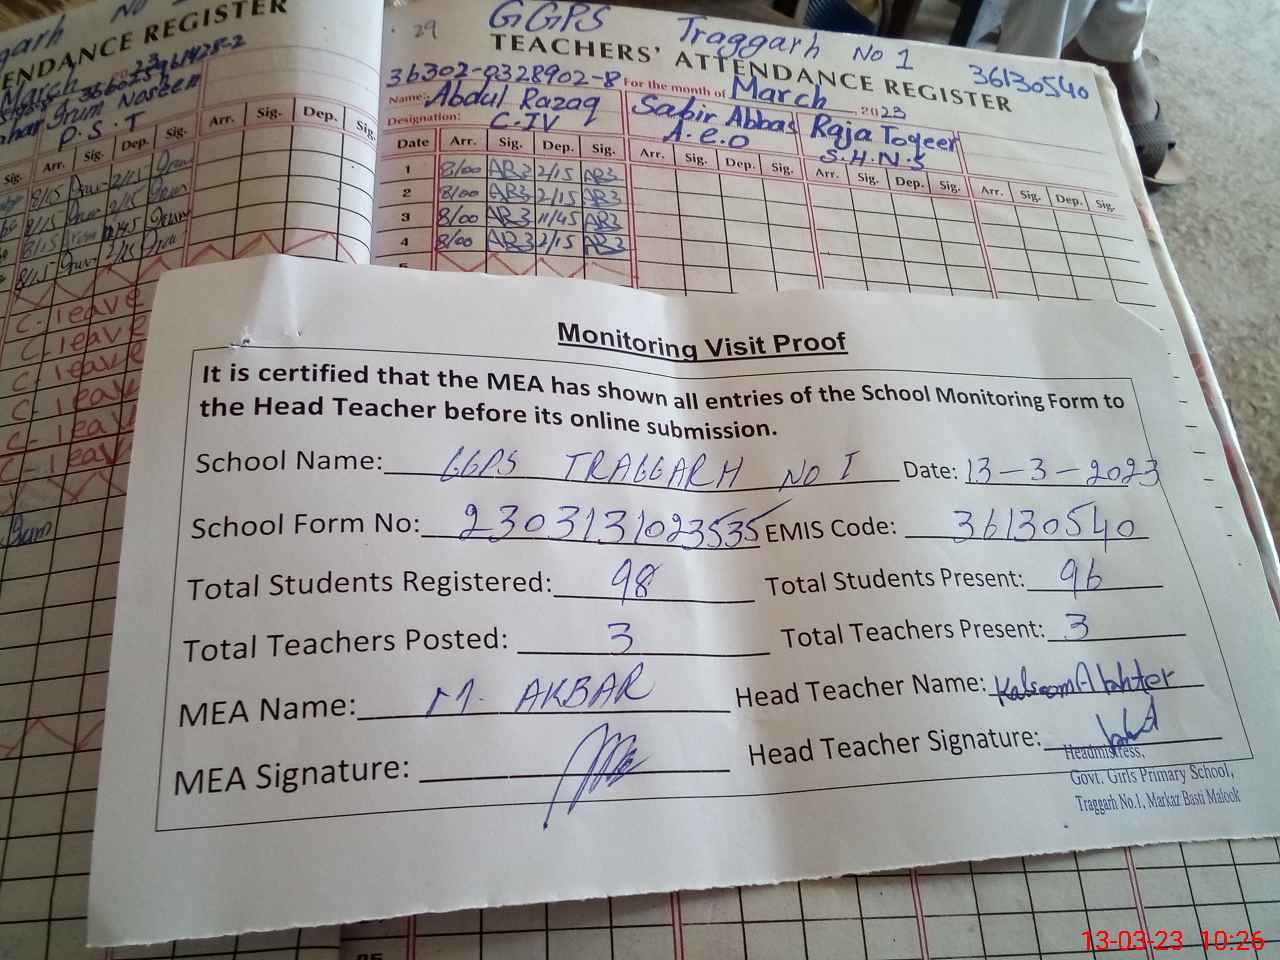 ENDANCE REGISTER
March
P.S.T
Sig. Arr. Sig. Dep. Sig. Arr. Sig. Dep. Sig.
8/15 2/15
8/15 2/15
8/15
8/15 2/15
C-leave
C-leave
C-leave
C-leave
C-leave
C-leave
29 GGPS Traggarh No 1
TEACHERS' ATTENDANCE REGISTER
36130540
36302-0328902-8 For the month of March 2023
Name: Abdul Razaq Sabir Abbas Raja Toqeer
Designation: C-IV A.e.o S.H.N.S
Date Arr. Sig. Dep. Sig. Arr. Sig. Dep. Sig. Arr. Sig. Dep. Sig. Arr. Sig. Dep. Sig.
1 8/00 2/15
2 8/00 2/15
3 8/00 11/45
4 8/00 2/15
Monitoring Visit Proof
It is certified that the MEA has shown all entries of the School Monitoring Form to
the Head Teacher before its online submission.
School Name: GGPS TRAGGARH NO I Date: 13-3-2023
School Form No: 2303131023535 EMIS Code: 36130540
Total Students Registered: 98 Total Students Present: 96
Total Teachers Posted: 3 Total Teachers Present: 3
MEA Name: M. AKBAR Head Teacher Name: Kalsoom Akhter
MEA Signature: Head Teacher Signature:
Headmistress,
Govt. Girls Primary School,
Traggarh No.1, Markaz Basti Malook
13-03-23 10:26